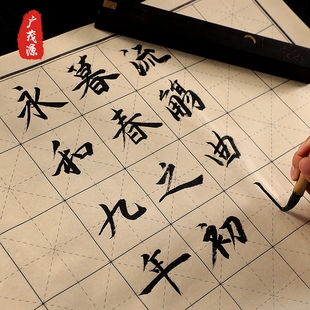 广茂源
永和九年
暮春之初
流觴曲